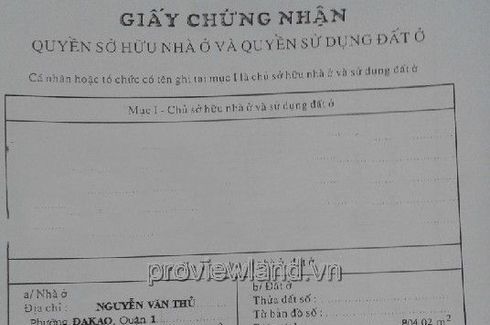 GIẤY CHỨNG NHẬN
QUYỀN SỞ HỮU NHÀ Ở VÀ QUYỀN SỬ DỤNG ĐẤT Ở
Cá nhân hoặc tổ chức có tên ghi tại mục I là chủ sở hữu nhà ở và sử dụng đất ở
Mục I - Chủ sở hữu nhà ở và sử dụng đất ở
proviewland.vn
a/ Nhà ở
Địa chỉ : NGUYỄN VĂN THỦ
Phường ĐAKAO, Quận 1
b/ Đất ở
Thửa đất số :
Tờ bản đồ số :
804,02 m²